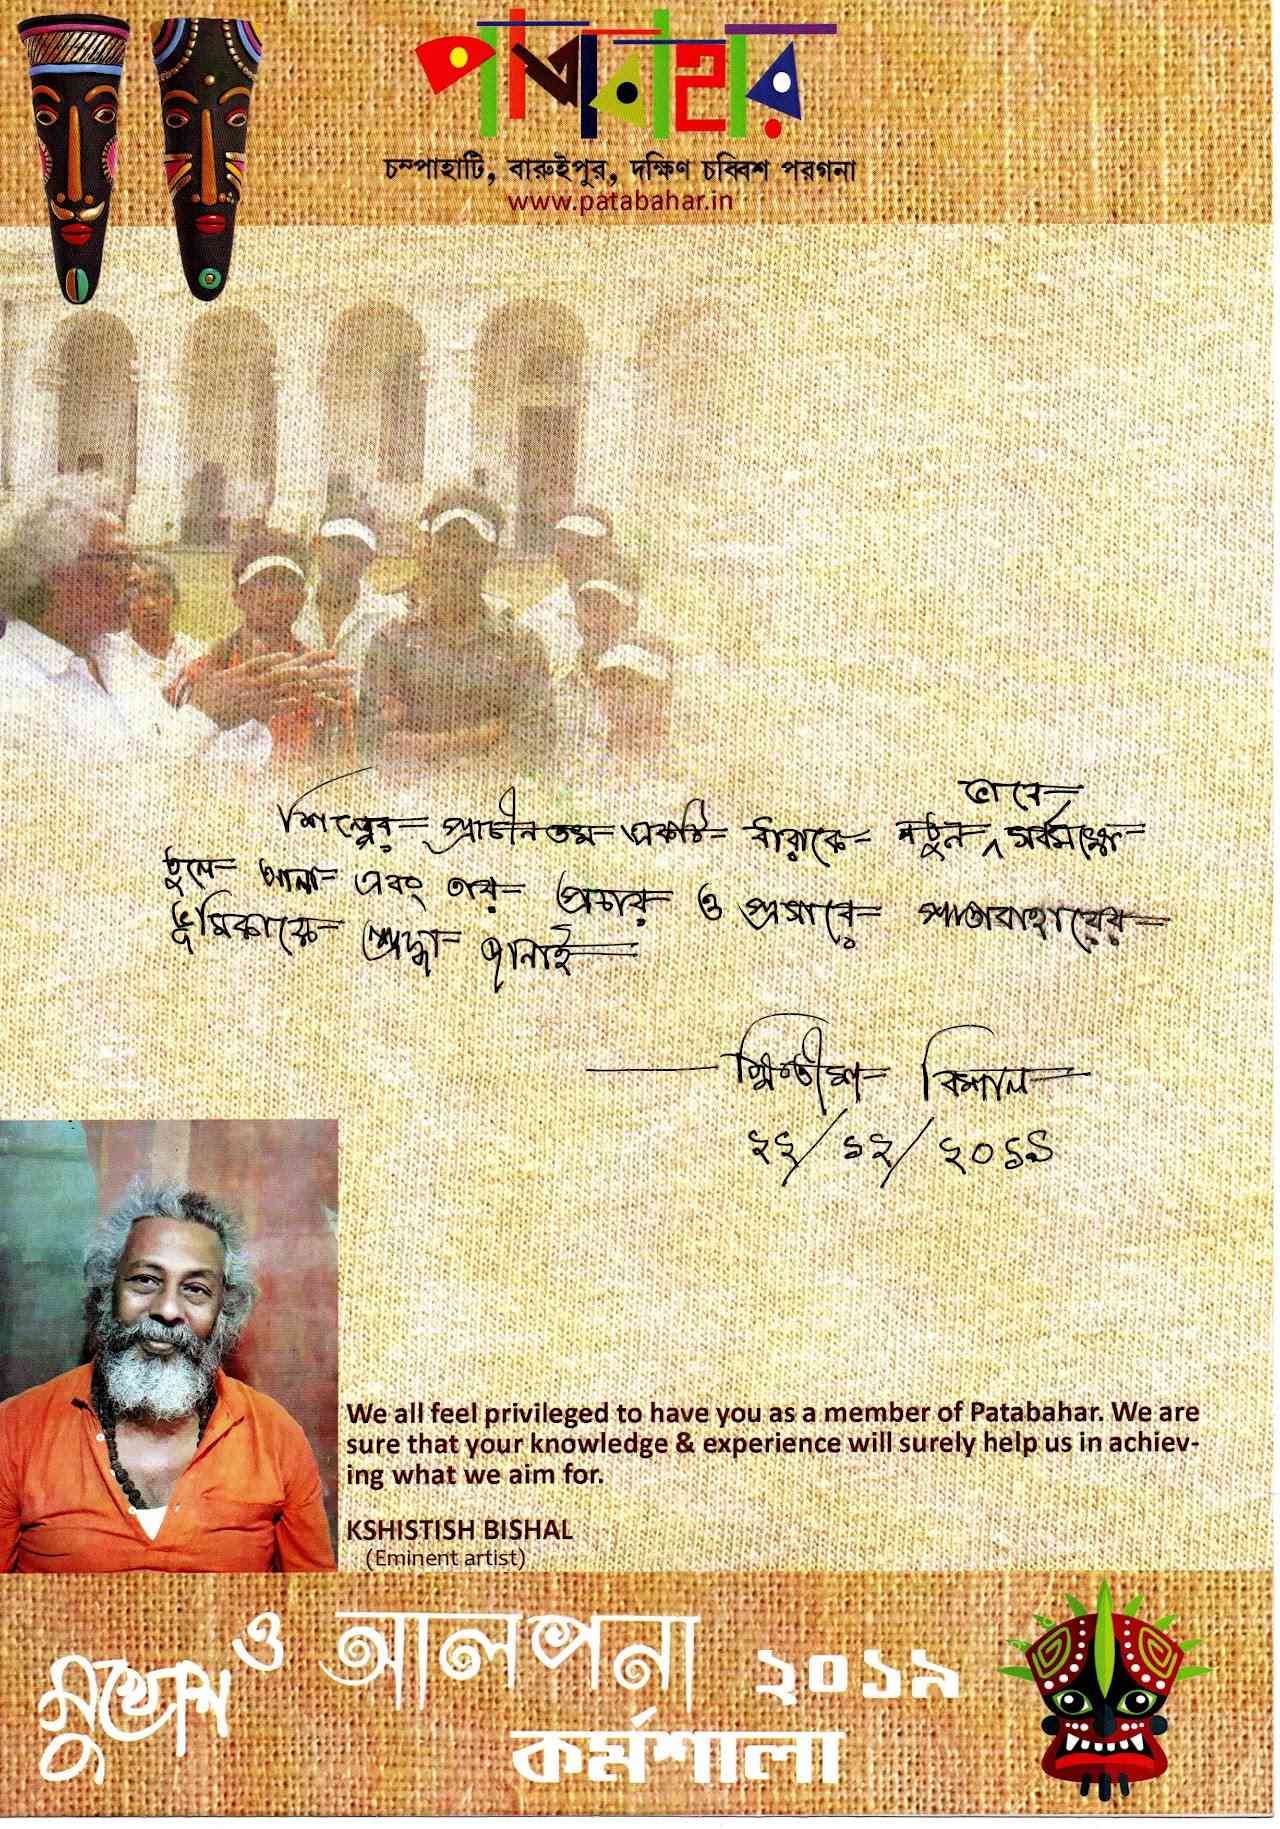 পাতাবাহার
চম্পাহাটি, বারুইপুর, দক্ষিণ চব্বিশ পরগনা
www.patabahar.in
শিল্পের প্রাচীনতম একটি ধারাকে নতুন ভাবে সর্বসমক্ষে
তুলে আনা এবং তার প্রচার ও প্রসারে পাতাবাহারের
ভূমিকাকে শ্রদ্ধা জানাই
ক্ষিতীশ বিশাল
২২/১২/২০১৯
We all feel privileged to have you as a member of Patabahar. We are
sure that your knowledge & experience will surely help us in achiev-
ing what we aim for.
KSHISTISH BISHAL
(Eminent artist)
মুখোশ ও আলপনা ২০১৯
কর্মশালা